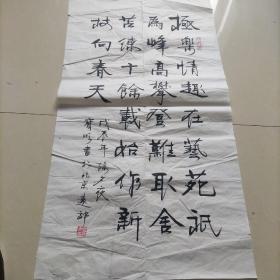 極樂情趣在藝苑祇
為峰高攀登難取舍
苦練十餘載始作新
枝向春天
年除夕夜
書於北京